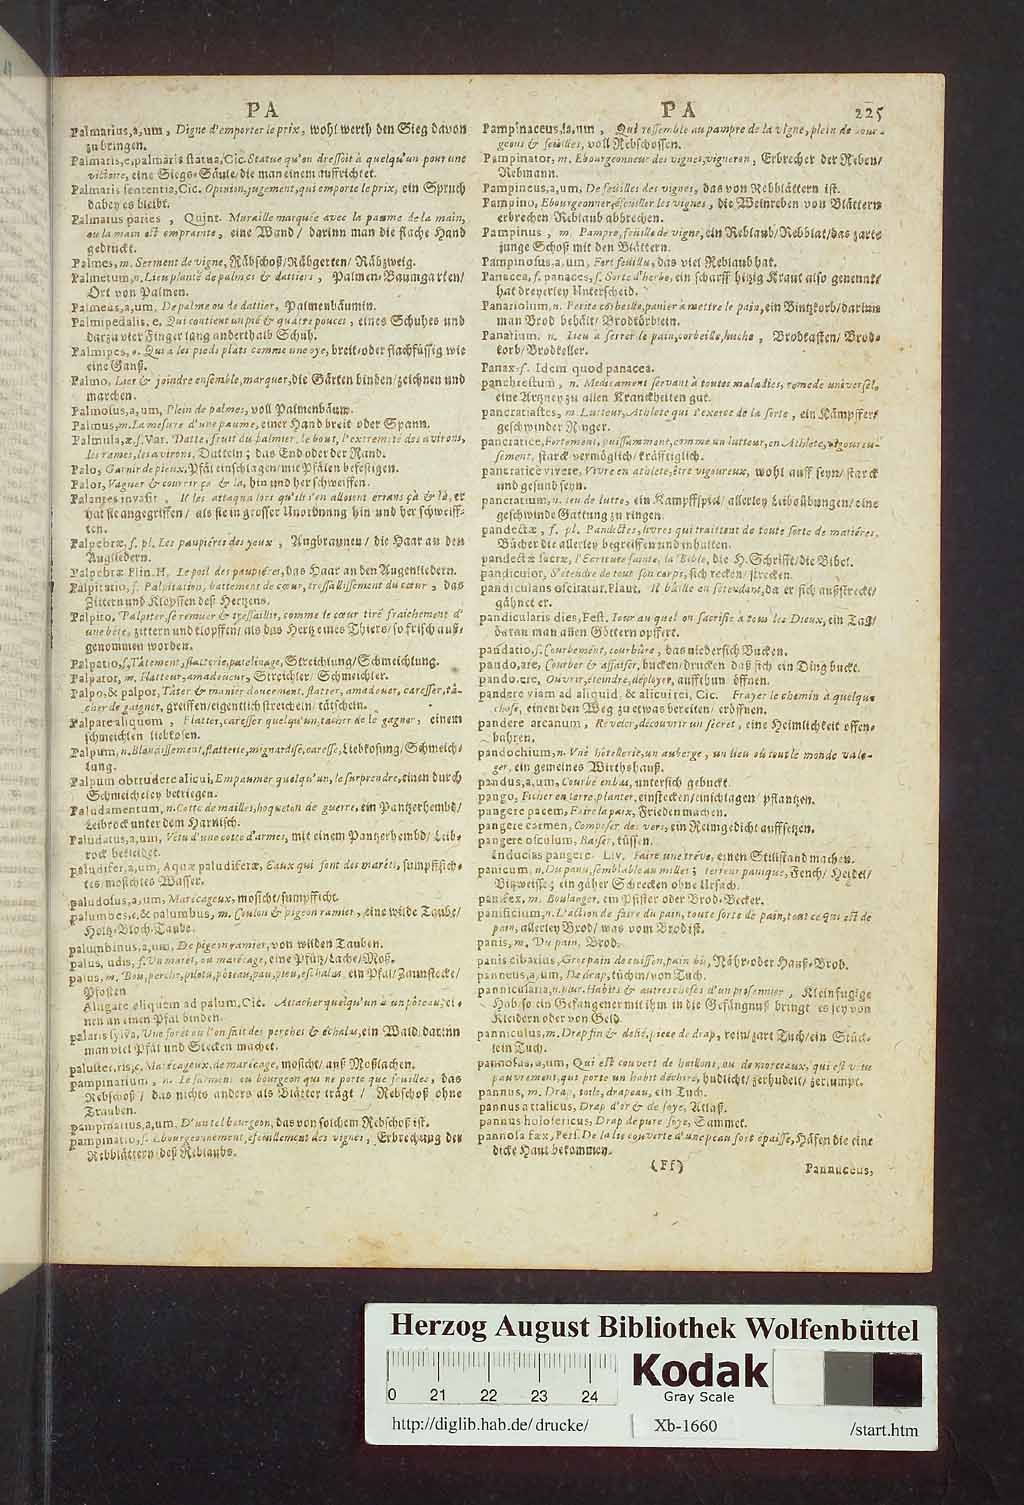 PA
Palmarius,a,um, Digne d'emporter le prix, wohl werth den Sieg davon
zu bringen.
Palmaris,e,palmaris statua,Cic.Statue qu'on dressoit à quelqu'un pour une
victoire, eine Siegs-Säule/die man einem auffrichtet.
Palmaris sententia,Cic. Opinion,jugement,qui emporte le prix, ein Spruch
dabey es bleibt.
Palmatus paries, Quint. Muraille marquée avec la paume de la main,
ou la main est empreinte, eine Wand/ darinn man die flache Hand
gedruckt.
Palmes,m.Serment de vigne, Räbschoß/Räbgerten/Räbzweig.
Palmetum,n.Lieu planté de palmes & dattiers, Palmen-Baumgarten/
Ort von Palmen.
Palmeus,a,um, De palme ou de dattier, Palmenbäumin.
Palmipedalis, e. Qui contient un pié & quatre pouces, eines Schuhes und
darzu vier Finger lang anderthalb Schuh.
Palmipes, Qui a les pieds plats comme une oye, breit-oder flachfüssig wie
eine Ganß.
Palmo, Lier & joindre ensemble,marquer,die Gärten binden/zeichnen und
marchen.
Palmosus,a,um, Plein de palmes, voll Palmenbäum.
Palmus,m.La mesure d'une paume, einer Hand breit oder Spann.
Palmula,æ.f.Var. Datte, fruit du palmier, le bout, l'extremité des avirons,
les rames,les avirons, Dattein; das End oder der Rand.
Palo, Garnir de pieux,Pfäl einschlagen/mit Pfälen befestigen.
Palor, Vaguer & courir çà & là, hin und her schweiffen.
Palantes invasit, Il les attaqua lors qu'ils s'en alloient errans çà & là, er
hat sie angegriffen/ als sie in grosser Unordnung hin und her schweiff-
ten.
Palpebræ,f.pl. Les paupiéres des yeux, Augbraunen/ die Haar an den
Augliedern.
Palpebræ Plin.H. Le poil des paupiéres,das Haar an den Augenliedern.
Palpitatio,f. Palpitation, battement de cœur, tressaillissement du cœur, das
Zittern und Klopffen deß Hertzens.
Palpito, Palpiter,se remuer & tressaillir, comme le cœur tiré fraichement d'
une bête, zittern und klopffen/ als das Hertz eines Thiers/so frisch auß-
genommen worden.
Palpatio,f.Tâtement,flatterie,patelinage,Streichlung/Schmeichlung.
Palpator, m. Flatteur,amadoueur, Streichler/Schmeichler.
Palpo,& palpor,Tâter & manier doucement,flatter, amadouer, caresser,tâ-
cher de gaigner, greiffen/eigentlich streicheln/tätscheln.
Palpare aliquem, Flatter,caresser quelqu'un,tacher de le gagner, einem
schmeichlen liebkosen.
Palpum,n.Blandissement,flatterie,mignardise,caresse,Liebkosung/Schmeich-
lung.
Palpum obtrudere alicui,Empaumer quelqu'un,le surprendre,einen durch
Schmeicheley betriegen.
Paludamentum, n.Cotte de mailles,hoqueton de guerre, ein Pantzerhembd/
Leibrock unter dem Harnisch.
Paludatus,a,um, Vétu d'une cotte d'armes, mit einem Pantzerhembd/Leib-
rock bekleidet.
paludifer,a,um, Aquæ paludiferæ, Eaux qui font des marêts, sumpffich-
tes/mosichtes Wasser.
paludosus,a,um,Marécageux,mosicht/sumpfficht.
palumbes,e,& palumbus, m. Coulon & pigeon ramier, eine wilde Taube/
Holtz-Bloch-Taube.
palumbinus,a,um, De pigeon ramier, von wilden Tauben.
palus, udis, f.Un marêt, ou marécage, eine Pfütz/Lache/Moß.
palus, m. Bou,perche,pilota,pôteau,pau,pieu,eschalas, ein Pfal/Zaunstecke/
Pfosten
Alligare aliquem ad palum,Cic. Attacher quelqu'un à un pôteau,ei-
nen an einen Pfal binden.
palaris sylva, Une forêt où l'on fait des perches & échalas,ein Wald darinn
man viel Pfäl und Stecken machet.
paluster,ris,e, Marécageux,de marécage, mosicht/ auß Moßlachen.
pampinarium, n. Le sarment ou bourgeon qui ne porte que feuilles, das
Rebschoß/ das nichts anders als Blätter trägt/ Rebschoß ohne
Trauben.
pampinarius,a,um, D'un tel bourgeon,das von solchem Rebschoß ist.
pampinatio, f. Ebourgeonnement, efeuillement des vignes, Erbrechung der
Rebblättern deß Reblaubs.
PA 225
Pampinaceus,a,um, Qui ressemble au pampre de la vigne, plein de bour-
geons & feuilles, voll Rebschossen.
Pampinator, m. Ebourgeonneur des vignes,vigneron, Erbrecher der Reben/
Rebmann.
Pampineus,a,um, De feuilles des vignes, das von Rebblättern ist.
Pampino, Ebourgeonner,éfeuiller les vignes, die Weinreben von Blättern
erbrechen Reblaub abbrechen.
Pampinus, m. Pampre,feuille de vigne,ein Reblaub/Rebblat/das zarte
junge Schoß mit den Blättern.
Pampinosus,a,um, Fort feuillu, das viel Reblaub hat.
Panacea, f. panaces, f. Sorte d'herbe,ein scharff hitzig Kraut also genennt/
hat dreyerley Unterscheid.
Panariolum,n. Petite corbeille,panier à mettre le pain,ein Bintzkorb/darinn
man Brod behält/ Brodkörblein.
Panarium, n. Lieu à serrer le pain,corbeille,huche, Brodkasten/ Brod-
korb/Brodkeller.
Panax f. Idem quod panacea.
panchrestum, n. Medicament servant à toutes maladies, remede universel,
eine Artzney zu allen Kranckheiten gut.
pancratiastes, m. Lutteur,Athlete qui s'exerce de la sorte, ein Kämpffer/
geschwinder Ringer.
pancratice,Fortement, puissamment,comme un lutteur,en Athlete,vigoureu-
sement, starck vermöglich/kräfftiglich.
pancraticè vivere, Vivre en athlete,être vigoureux, wohl auff seyn/starck
und gesund seyn.
pancratium, n. Jeu de lutte, ein Kampffspiel/ allerley Leibsübungen/eine
geschwinde Gattung zu ringen.
pandectæ, f. pl. Pandectes,livres qui traittent de toute sorte de matiéres,
Bücher die allerley begreiffen und inhalten.
pandectæ sacræ, l'Ecriture sainte, la Bible, die H.Schrifft/die Bibel.
pandiculor, S'étendre de tout son corps, sich recken/strecken.
pandiculans oscitatur,Plaut. Il bâille en s'étendant,da er sich außstreckt/
gähnet er.
pandicularis dies,Fest. Jour auquel on sacrifie à tous les Dieux, ein Tag/
daran man allen Göttern opffert.
pandatio, f. Courbement, courbûre, das niedersich Bucken.
pando,are, Courber & affaisser, bucken/drucken daß sich ein Ding buckt.
pando,ere, Ouvrir,étendre,déployer, aufftbun öffnen.
pandere viam ad aliquid, & alicui rei, Cic. Frayer le chemin à quelque
chose, einem den Weg zu etwas bereiten/ eröffnen.
pandere arcanum, Reveler,découvrir un secret, eine Heimlichkeit offen-
bahren.
pandochium,n. Une hôtellerie,un auberge, un lieu où tout le monde va lo-
ger, ein gemeines Wirthshauß.
pandus,a,um, Courbé en bas, untersich gebuckt.
pango, Ficher en terre,planter, einstecken/einschlagen/ pflantzen.
pangere pacem, Faire la paix, Frieden machen.
pangere carmen, Composer des vers, ein Reimgedicht auffsetzen.
pangere osculum, Baiser, küssen.
Inducias pangere. Liv. Faire une tréve, einen Stillstand machen.
panicum, n.Du panis,semblable au millet; terreur panique, Fench/ Heidel/
ein gäher Schrecken ohne Ursach.
panifex, m. Boulanger, ein Pfister oder Brod-Becker.
panificium,n.L'action de faire du pain,toute sorte de pain,tout ce qui est de
pain, allerley Brod/ was vom Brod ist.
panis, m. Du pain, Brod.
panis cibarius, Gros pain de cuisson, pain bis, Nähr-oder Hauß-Brod.
panneus,a,um, De drap, tüchin/von Tuch.
pannicularia,n.plur.Habits & autres choses d'un prisonnier, Kleinfugige
Hab/so ein Gefangener mit ihm in die Gefängnuß bringt es sey von
Kleidern oder von Geld.
panniculus,m. Drap fin & delié,piece de drap, rein/zart Tuch/ein Stück-
lein Tuch.
pannosus,a,um, Qui est couvert de haillons, ou de morceaux, qui est vêtu
pauvrement,qui porte un habit déchiré, hudlicht/zerhudelt/zerlumpt.
pannus, m. Drap, toile, drapeau, ein Tuch.
pannus attalicus, Drap d'or & de soye, Atlaß.
pannus holosericus, Drap de pure soye, Sammet.
pannosa fæx, Pers. De la lie couverte d'une peau fort épaisse, Häfen die eine
dicke Haut bekommen.
(Ff) Pannuceus,
Herzog August Bibliothek Wolfenbüttel
Kodak
Gray Scale
0 21 22 23 24
http://diglib.hab.de/drucke/ Xb-1660 /start.htm